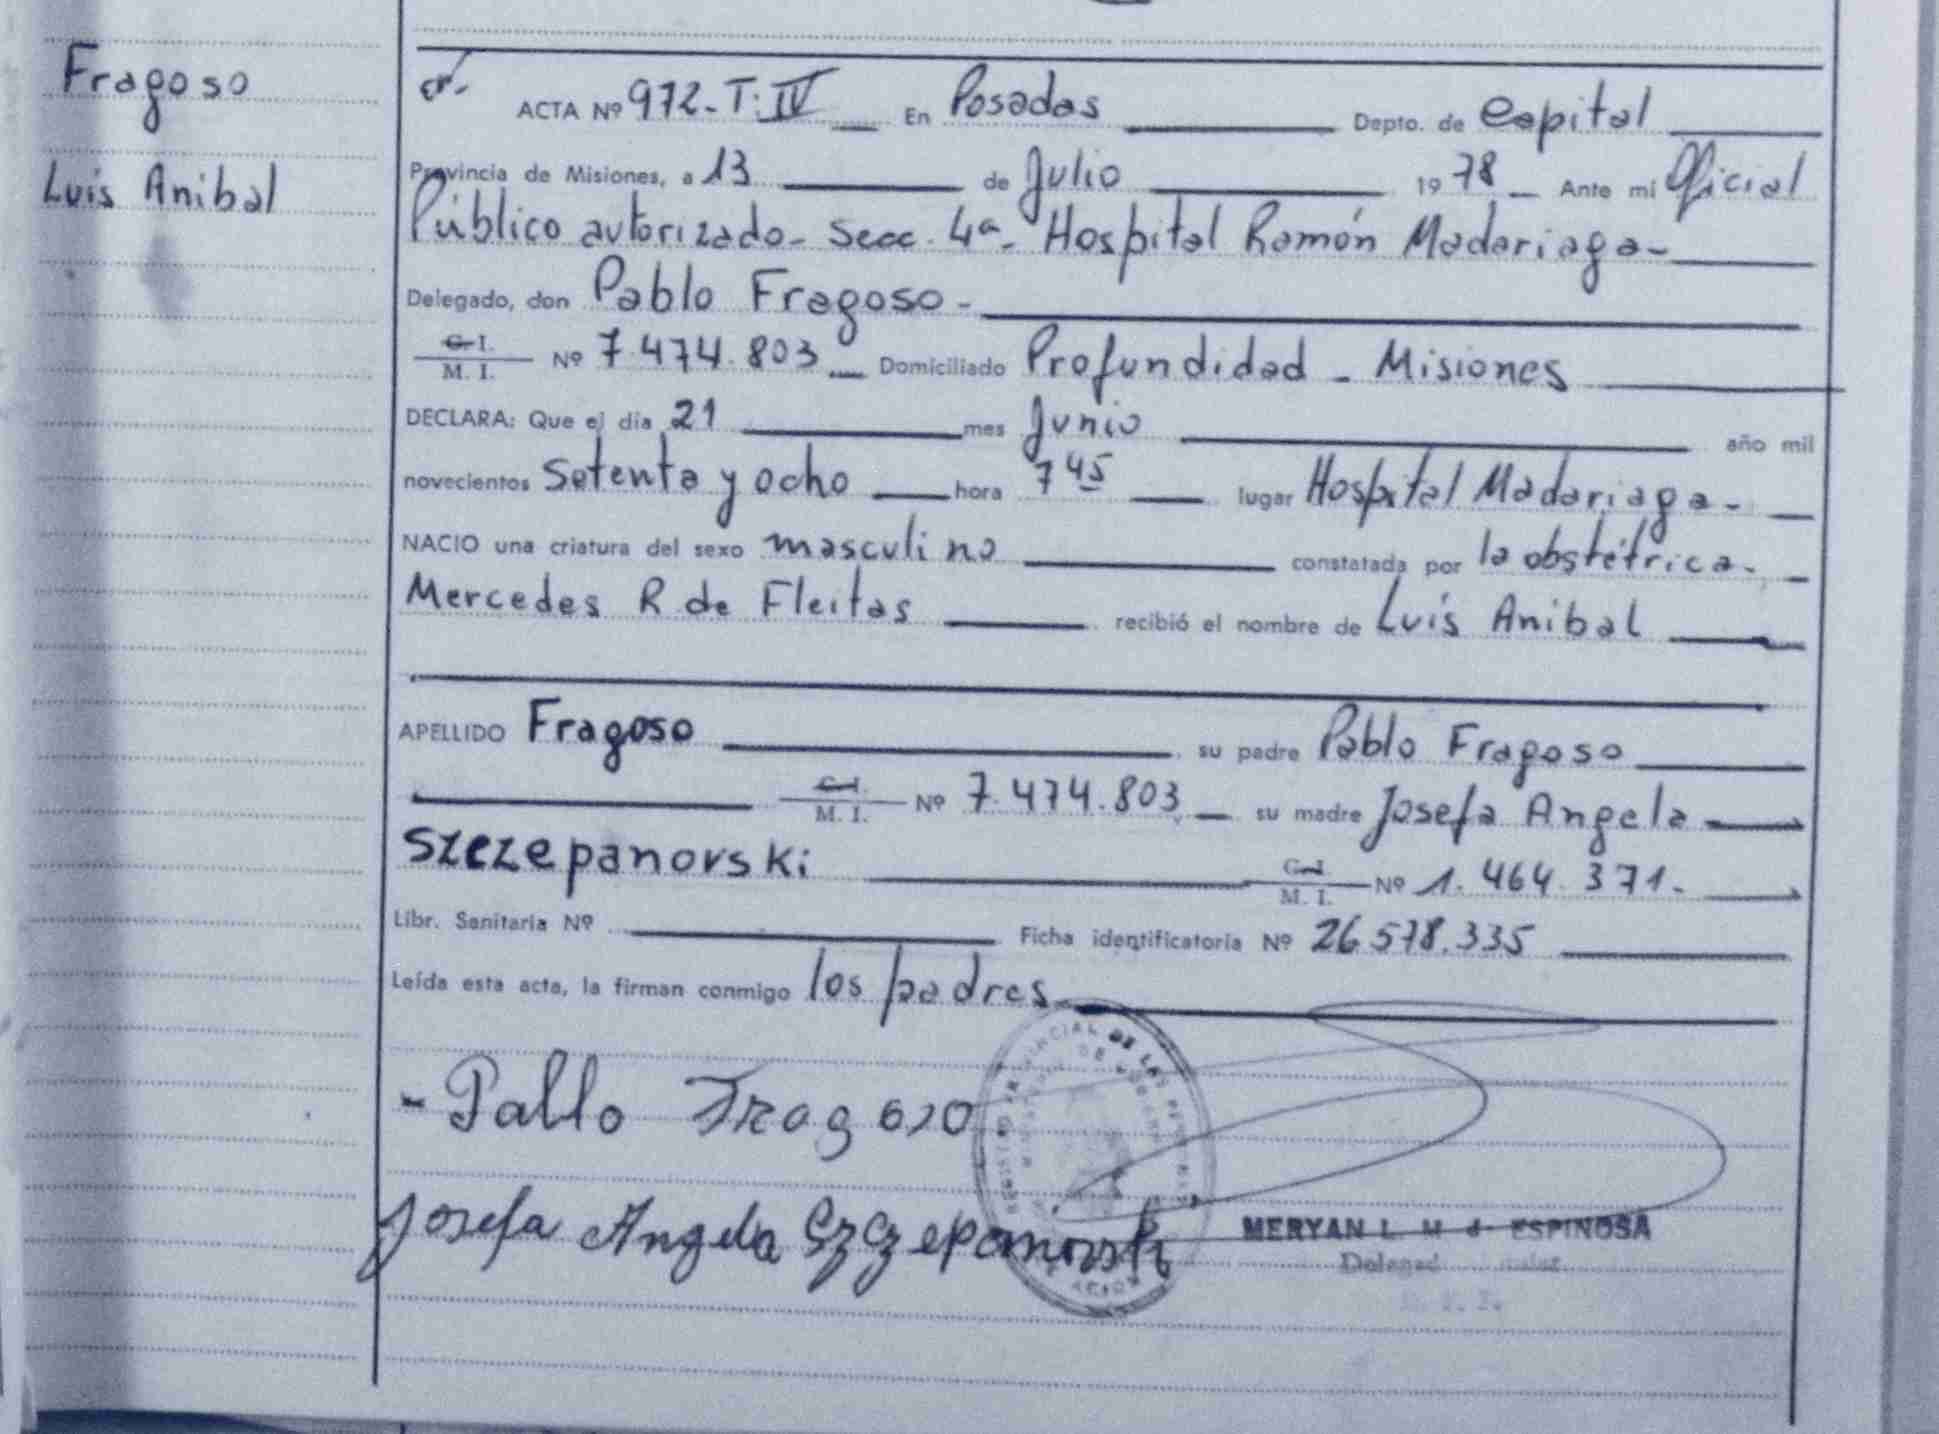 Fragoso
Luis Anibal
ACTA Nº 972-T:IV En Posadas Depto. de Capital
Provincia de Misiones, a 13 de Julio 1978 Ante mi Oficial
Público autorizado- Secc. 4ª- Hospital Ramón Madariaga-
Delegado, don Pablo Fragoso-
C. I. M. I. Nº 7.474.803 Domiciliado Profundidad - Misiones
DECLARA: Que el día 21 mes Junio año mil
novecientos Setenta y ocho hora 7 45 lugar Hospital Madariaga-
NACIO una criatura del sexo masculino constatada por la obstétrica-
Mercedes R de Fleitas recibió el nombre de Luis Anibal
APELLIDO Fragoso su padre Pablo Fragoso
C. I. M. I. Nº 7.474.803 su madre Josefa Angela
Szczepanovski C. I. M. I. Nº 1.464.371.
Libr. Sanitaria Nº Ficha identificatoria Nº 26.578.335
Leída esta acta, la firman conmigo los padres
REGISTRO PROVINCIAL DE LAS PERSONAS
- Pablo Fragoso
Josefa Angela Szczepanovski
MERYAN L. M d ESPINOSA